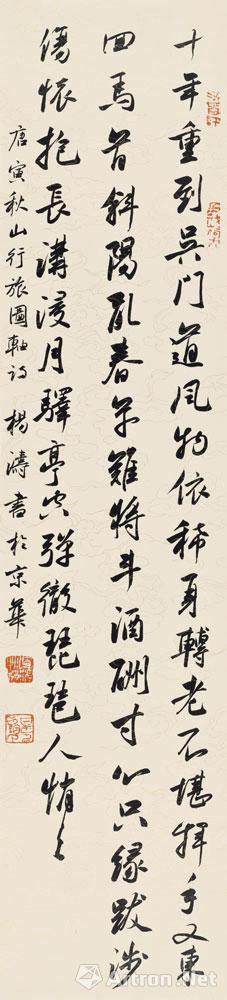 十年重到吴门道风物依稀身轉老不堪揮手又東
回馬首斜陽亂春草難將斗酒酬寸心只緣跋涉
傷懷抱長溝浸月驛亭空弹徹琵琶人悄々
唐寅秋山行旅圖軸詩 楊濤書於京華
Artron.Net